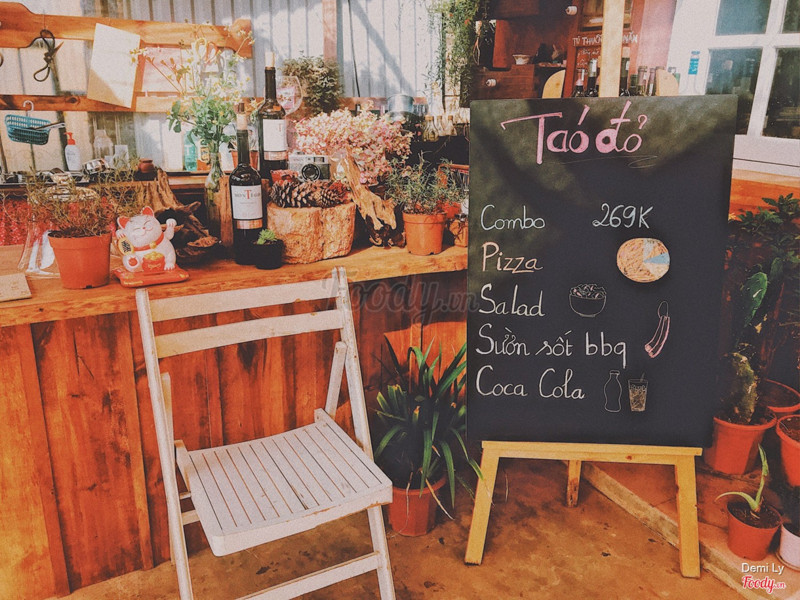 Táo đỏ
Combo 269K
Pizza
Salad
Sườn sốt bbq
Coca Cola
Foody.vn
Demi Ly
Foody.vn